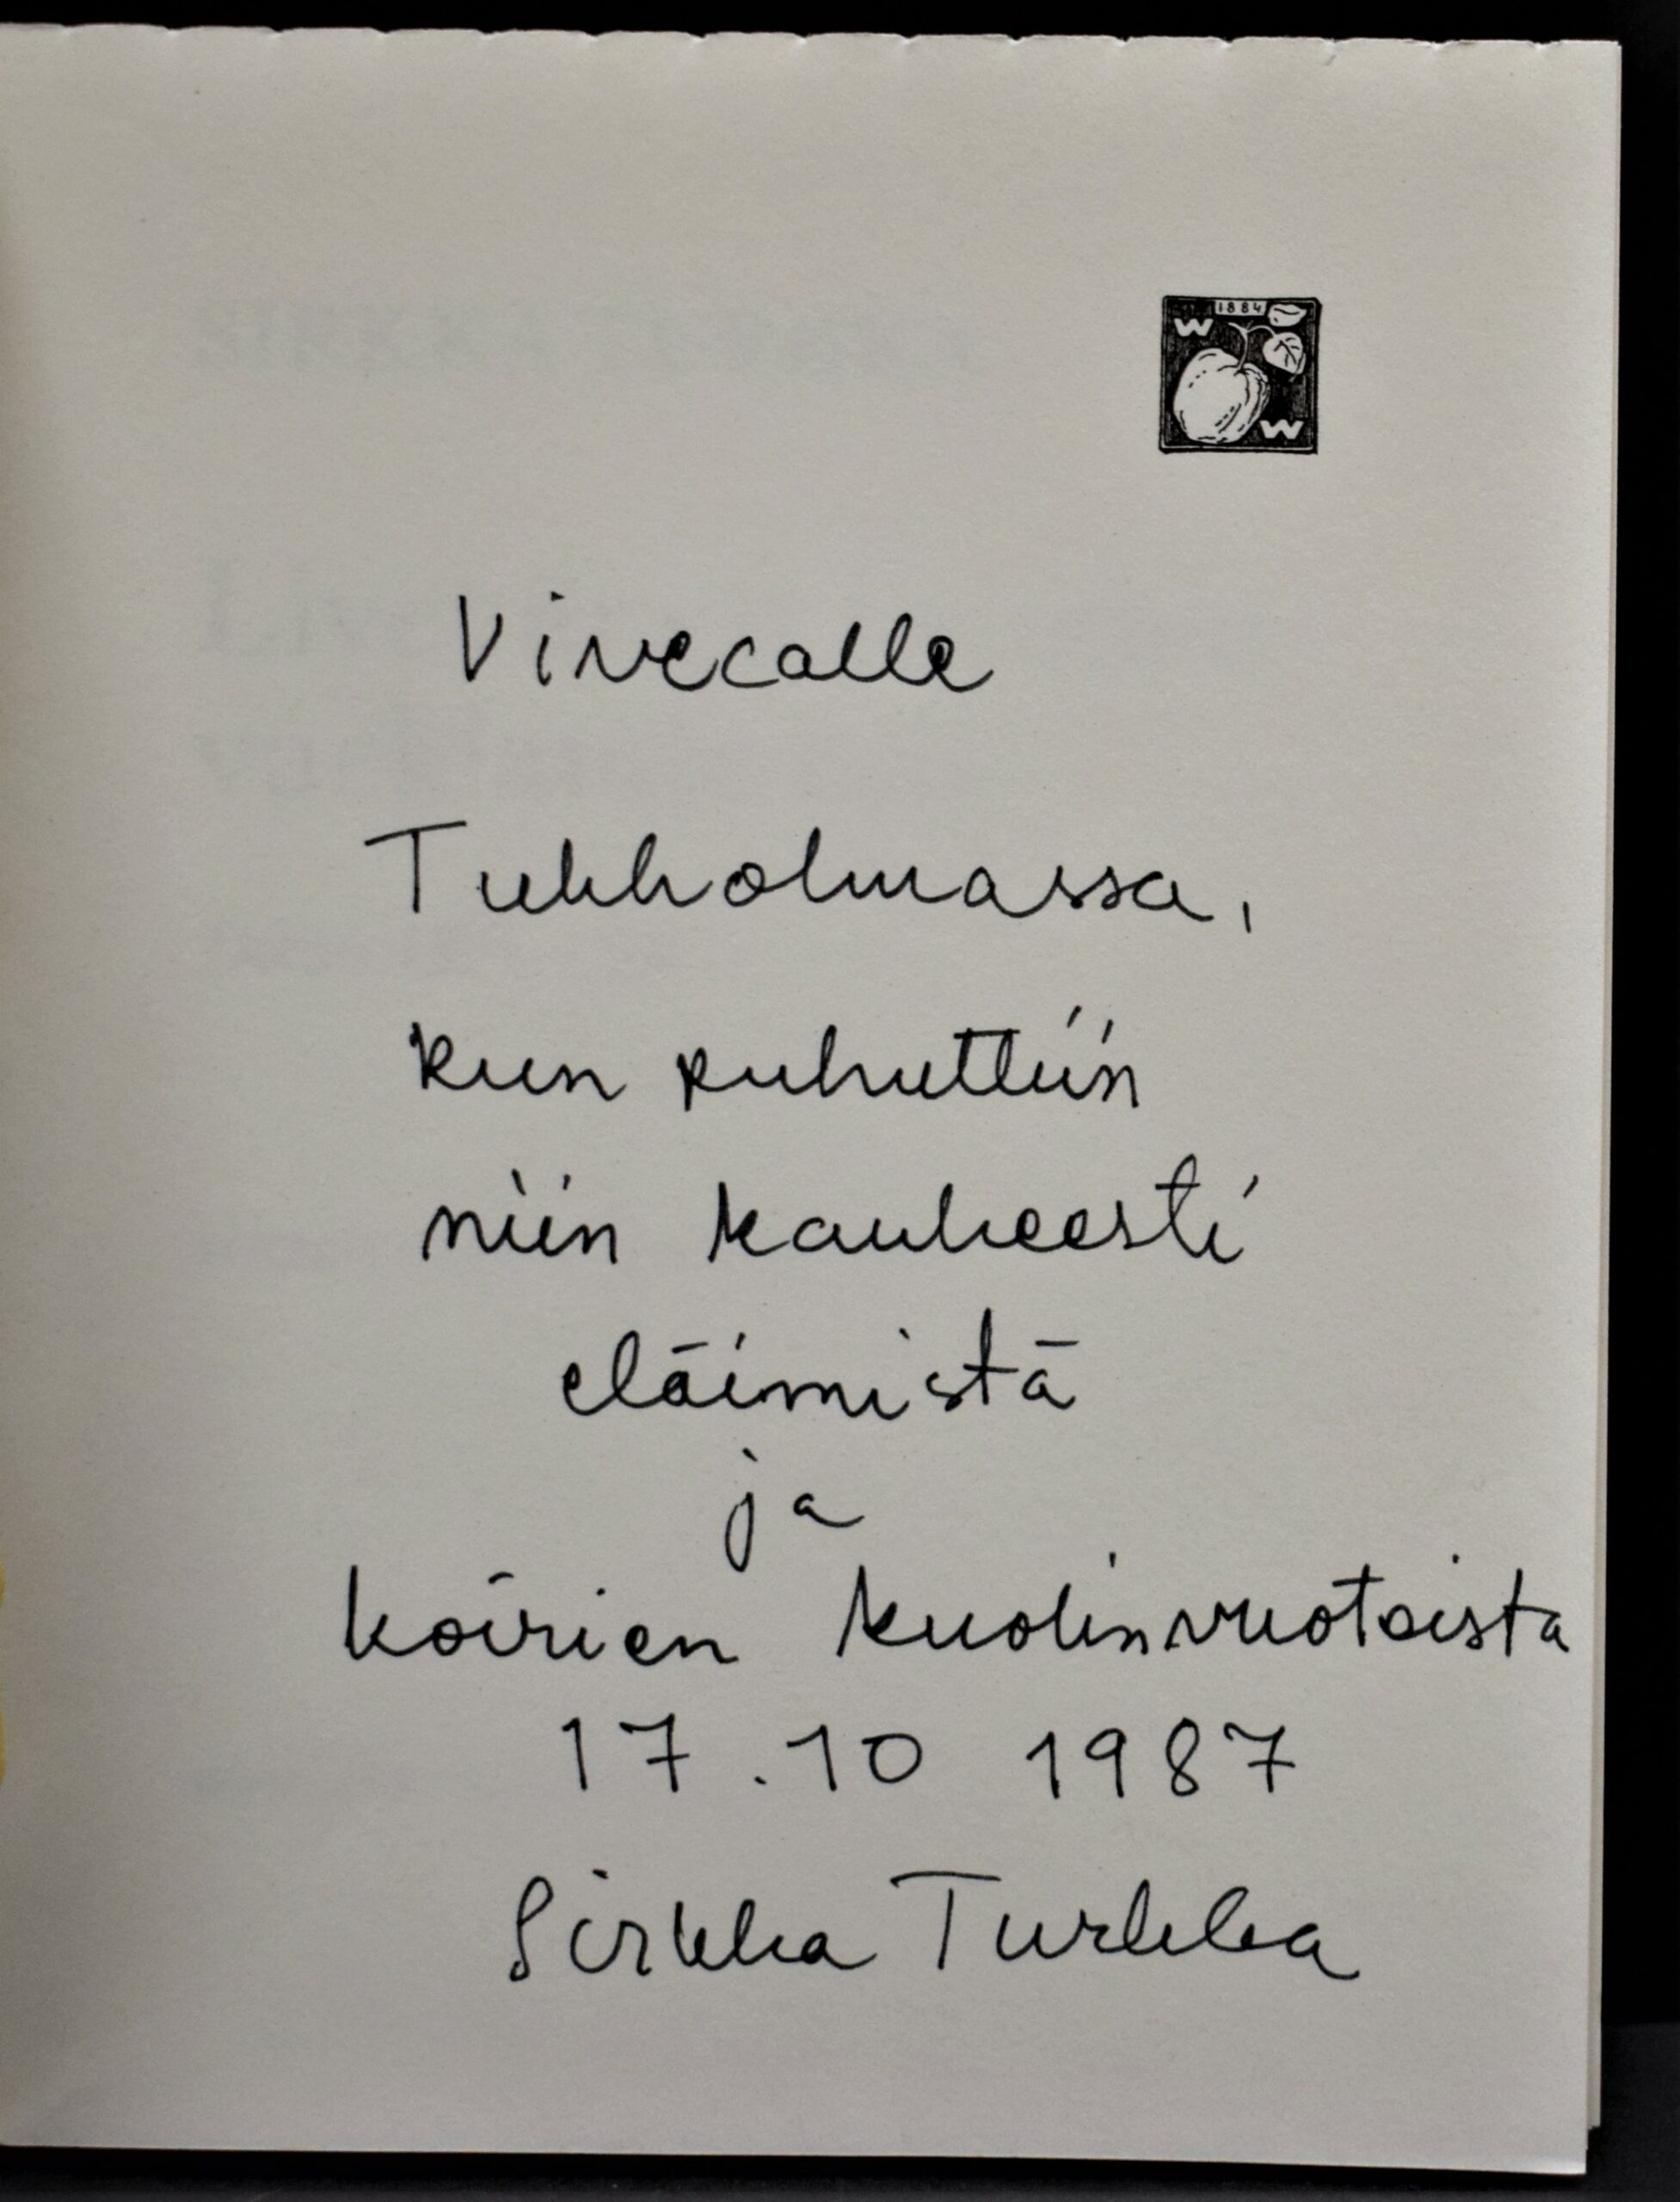 1884
W
W
Vivecalle
Tukholmassa,
kun puhuttiin
niin kauheesti
eläimistä
ja
koirien kuolinvuoteista
17.10 1987
Sirkka Turkka